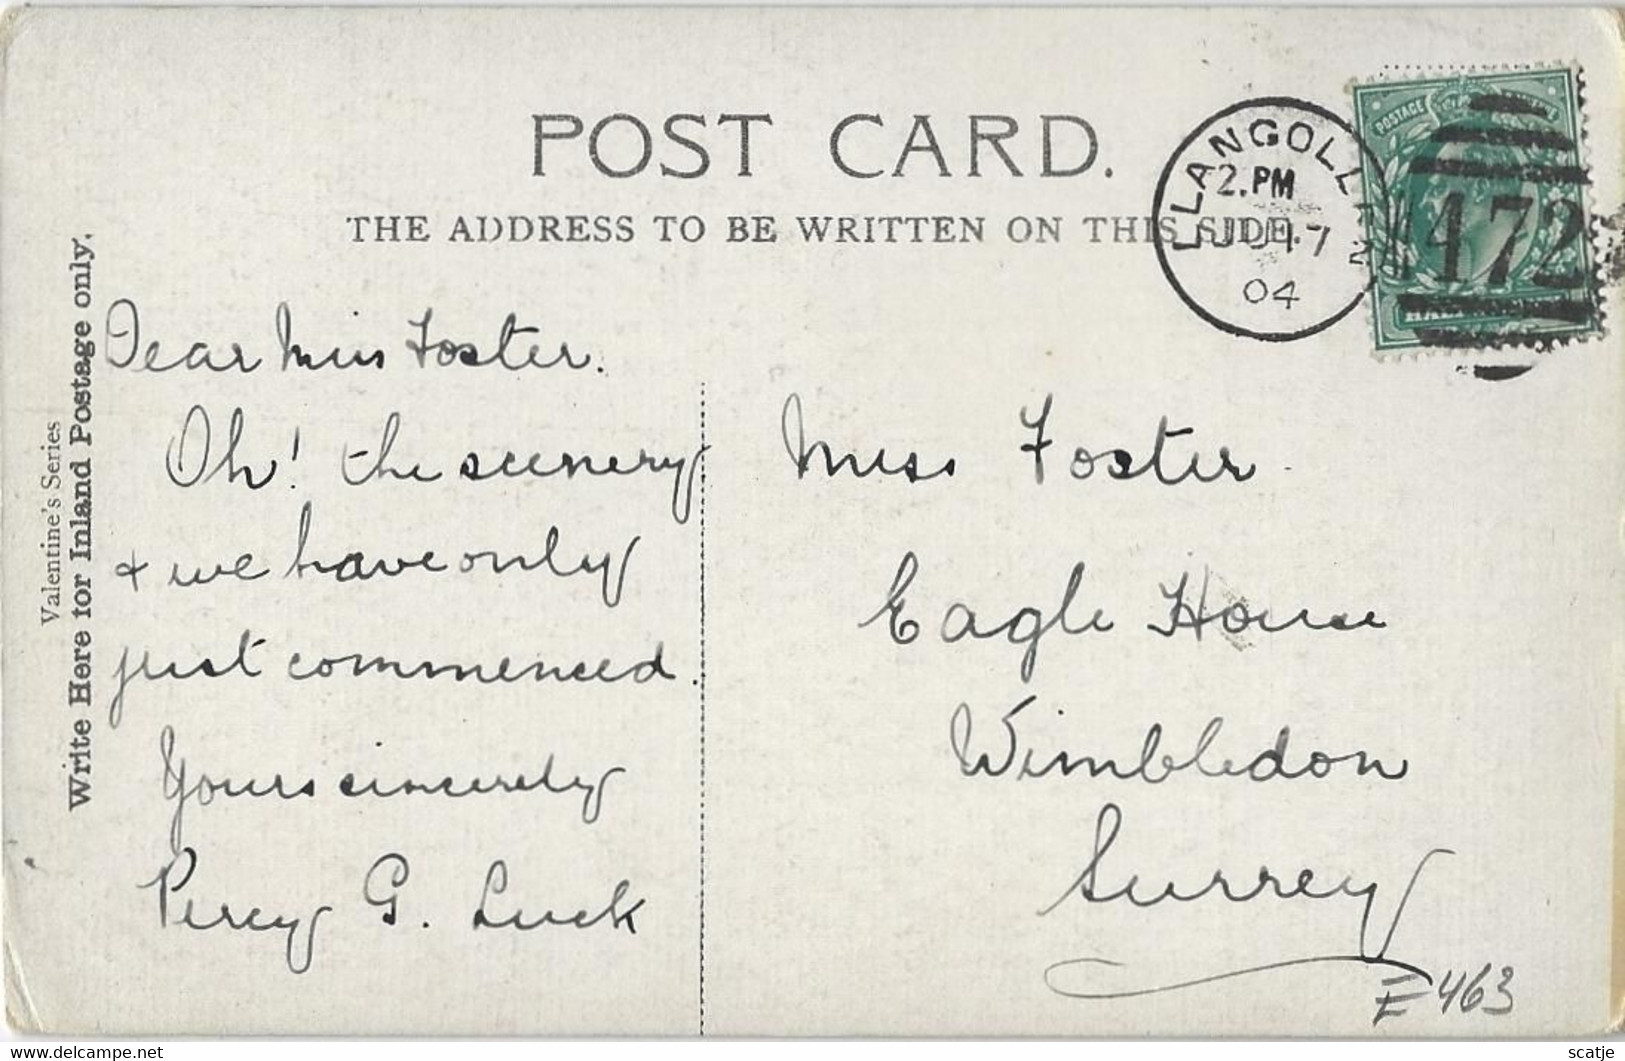 POST CARD.
THE ADDRESS TO BE WRITTEN ON THIS SIDE.
LLANGOLLEN
2.PM
JU 17
04
POSTAGE
472
Valentine's Series
Write Here for Inland Postage only.
Dear Miss Foster.
Oh! the scenery
+ we have only
just commenced.
Yours sincerely
Percy G. Luck
Miss Foster
Eagle House
Wimbledon
Surrey
E463
delcampe.net
scatje